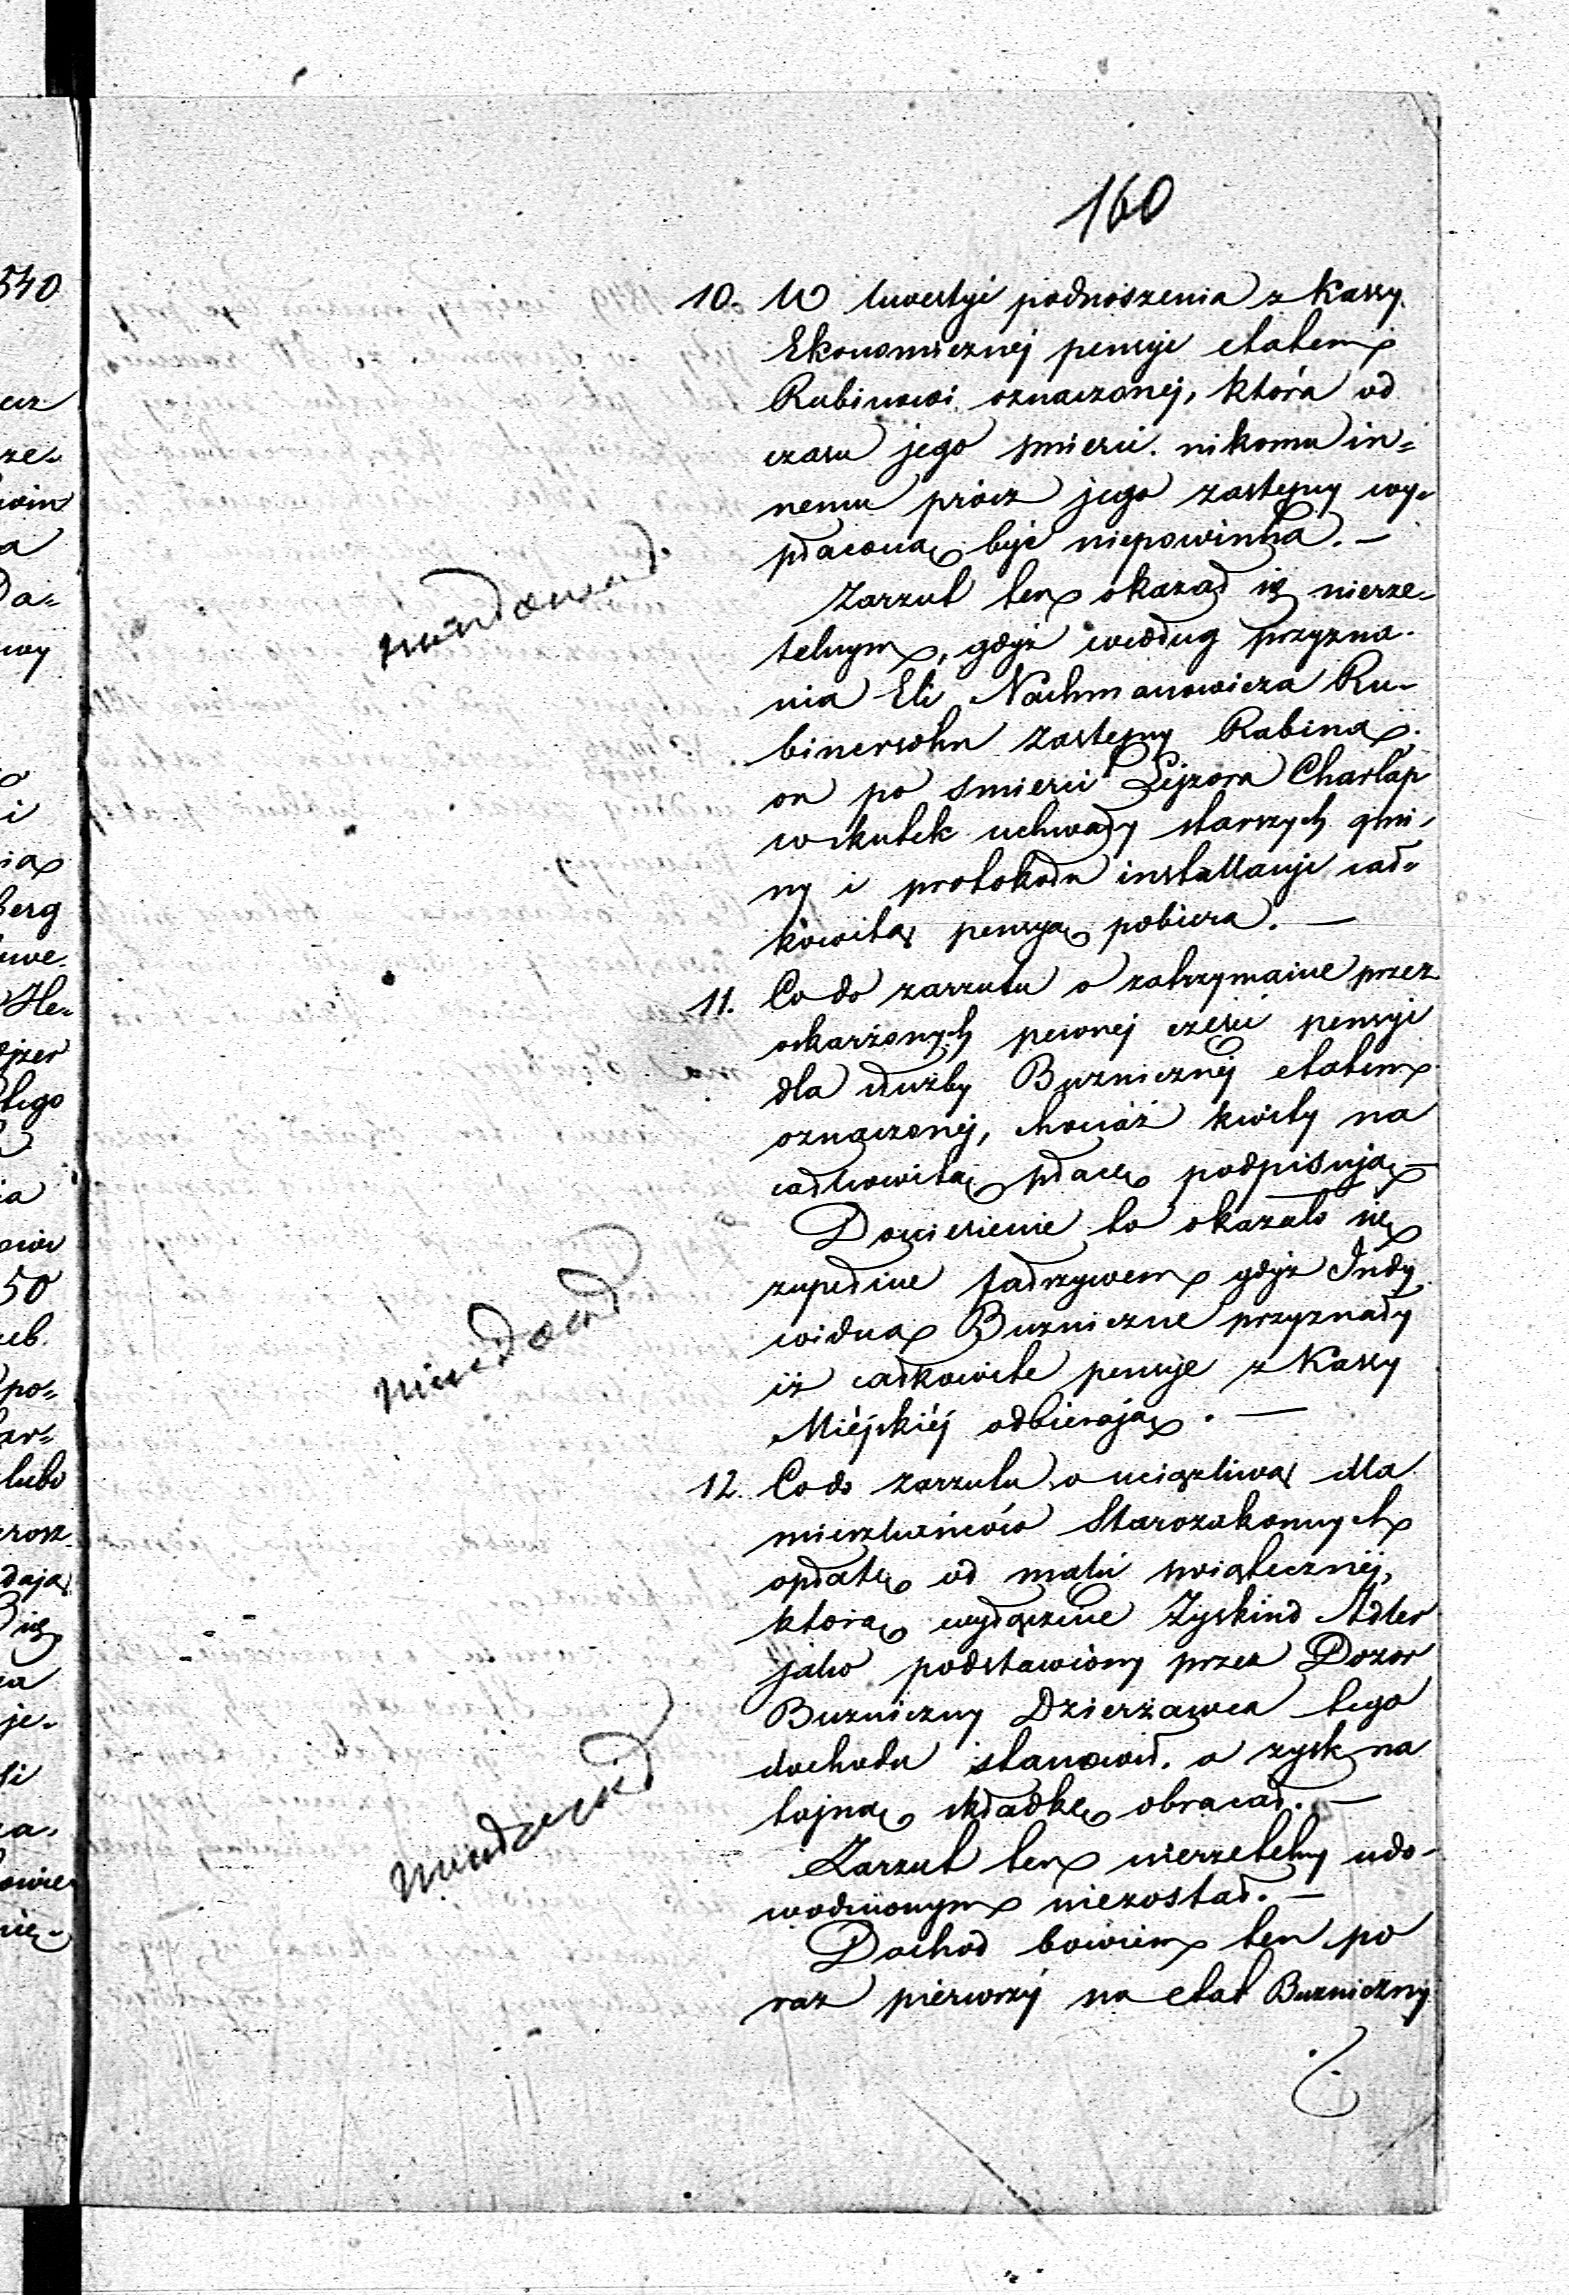 160
10. W kwestyi podnoszenia z Kassy
Ekonomicznej pensyi etatem
Rabinowi oznaczonej, która od
czasu jego smierci nikomu in=
nemu prócz jego zastępcy wy=
płaconą być niepowinna. —
Zarzut ten okazał się nierze=
telnym, gdyż według przyzna=
nia Eli Nachmanowicza Ru=
binersohn zastępcy Rabina
on po smierci Lejzora Charłap
wskutek uchwały starszych gmi=
ny i protokołu installacyi cał=
kowitą pensyą pobiera. —
11. Co do zarzutu o zatrzymanie przez
oskarżonych pewnej części pensyi
dla służby Bużnicznej etatem
oznaczonej, chociaż kwity na
całkowitą płacę podpisują —
Doniesienie to okazało się
zupełnie fałszywem gdyż Indy
widua Bużniczne przyznały
iż całkowite pensyje z Kassy
Miéjskiéj odbierają. —
12. Co do zarzutu o uciążliwą dla
mieszkańców Starozakonnych
opłatę od maki swiątecznéj,
którą wyłącznie Zyskind Adler
jako podstawiony przez Dozor
Bużniczny Dzierżawca tego
dochodu stanowił. a zysk na
tajną składkę obracał. —
Zarzut ten nierzetelny udo=
wodnionym niezostał. —
Dochod bowiem ten po
raz pierwszy na etat Bużniczny
540
berg
tego
50
po=
lubo
je=